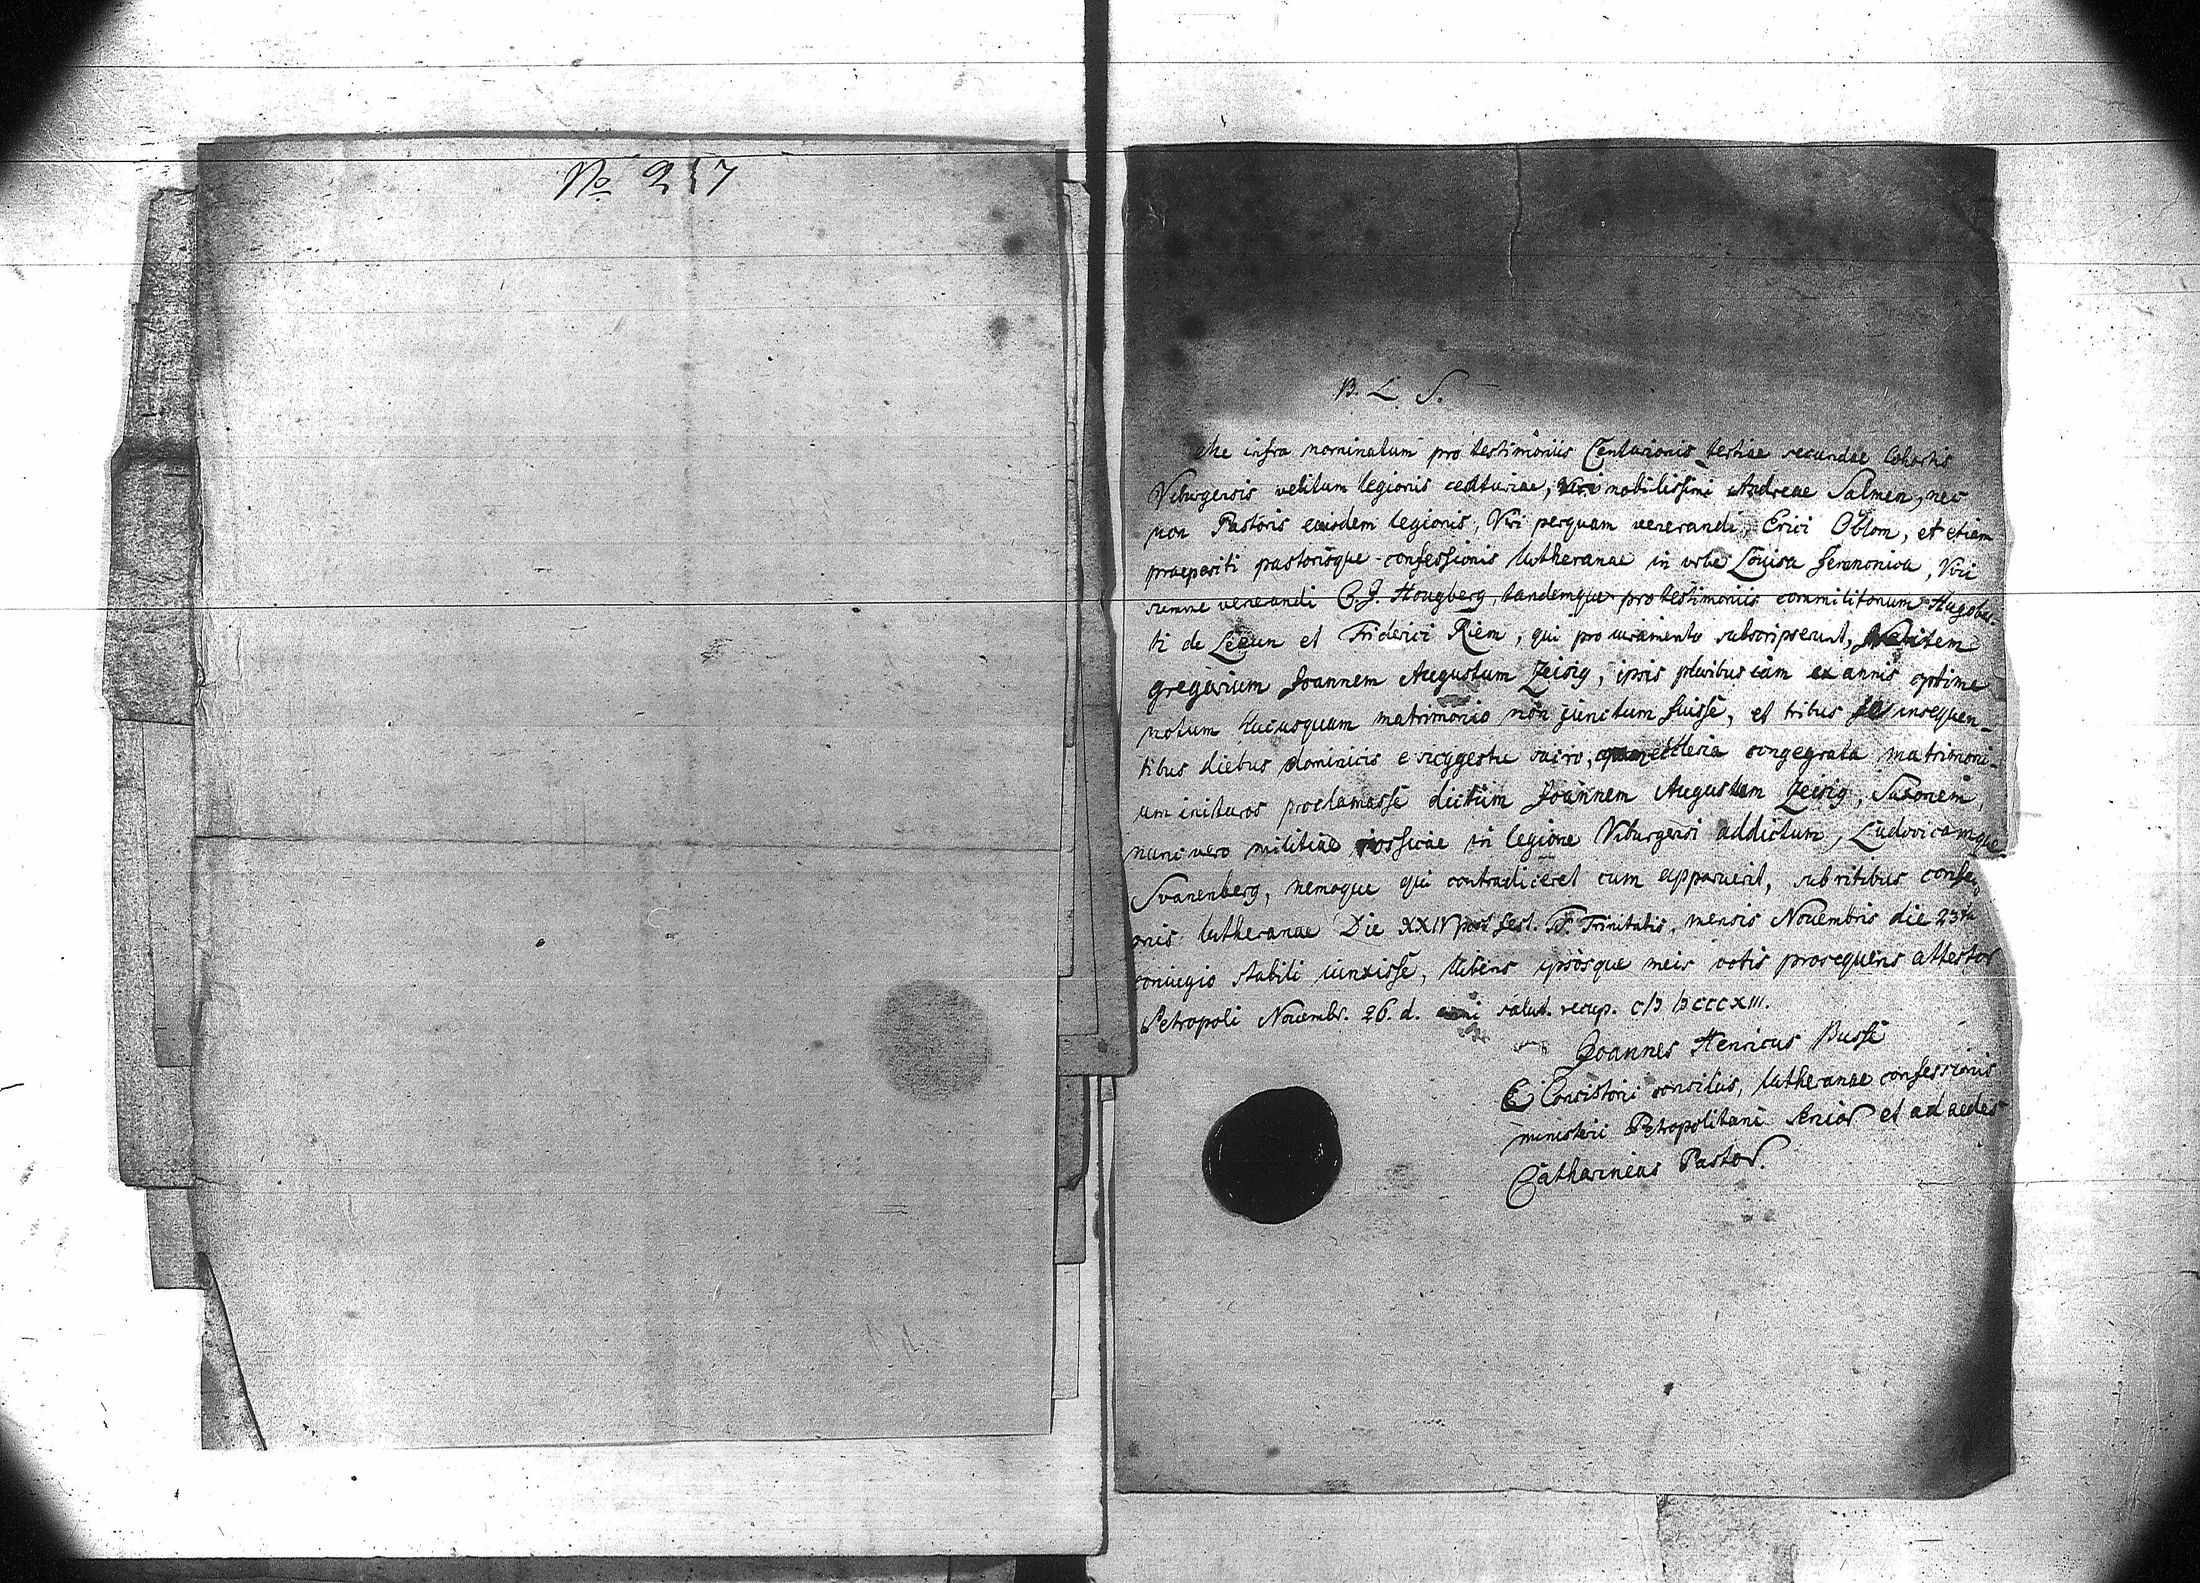 No 217
B. L. S.
Me infra nominatum pro testimoniis Centurionis tertiae secundae Cohortis
Viburgensis velitum legionis centuriae, Viri nobilissimi Andreae Salmen, nec
non Pastoris eiusdem legionis, Viri perquam venerandi, Erici Oblom, et etiam
praepositi pastorisque confessionis lutheranae in urbe Louisa, Viri
summe venerandi C. J. Hougberg, tandemque pro testimoniis commilitonum Hugober-
ti de Leeun et Friderici Riem, qui pro iuramento subscripserunt,
gregarium Joannem Augustum Zeisig, ipsis pluribus iam ex annis optime
notum huiusquam matrimonio non junctum fuisse, et tribus se insequen-
tibus diebus dominicis e suggestu sacro, ecclesia congregata matrimoni-
um inituros proclamasse dictum Joannem Augustum Zeisig, Saxonem,
nunc vero militiae rossicae in legione Viburgensi addictum, Ludovicamque
Svanenberg, nemoque qui contradiceret cum apparuerit, sub ritibus confessi-
onis lutheranae Die XXIV post fest. Trinitatis, mensis Novembris die 23tia
coniugio stabili iunxisse, libens ipsosque meis votis prosequens attestor
Petropoli Novembr. 26. d. anni salut. recup. CIↃ IↃCCCXIII.
Joannes Henricus Busse
E Consistorii consiliis, lutheranae confessionis
ministerii Petropolitani Senior et ad aedes
Catharineas Pastor.